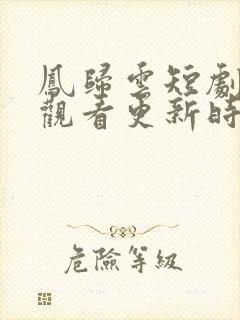 鳳歸雲短劇
觀看更新時
危險等級